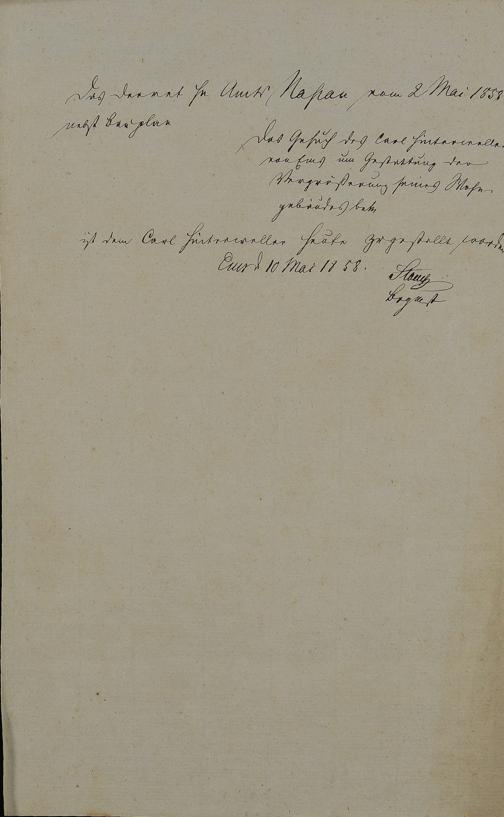 Das Decret Hz. Amts Naßau vom 2 Mai 1858
nebst Bauplan
Das Gesuch des Carl Hinterweller
von Ems um Gestattung der
Vergrößerung seines Wohn
gebäudes betr.
ist dem Carl Hinterweller heute zugestellt worden
Ems d 10 Mai 1858.